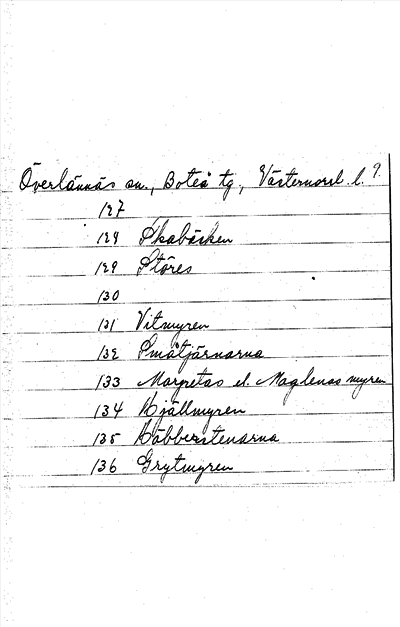 Överlännäs sn., Boteå tg., Västernorrl. l. 9.
127
128 Skabäcken
129 Störes
130
131 Vitmyren
132 Småtjärnarna
133 Margretas el. Maglenas myren
134 Kjällmyren
135 Käbbestenarna
136 Grytmyren